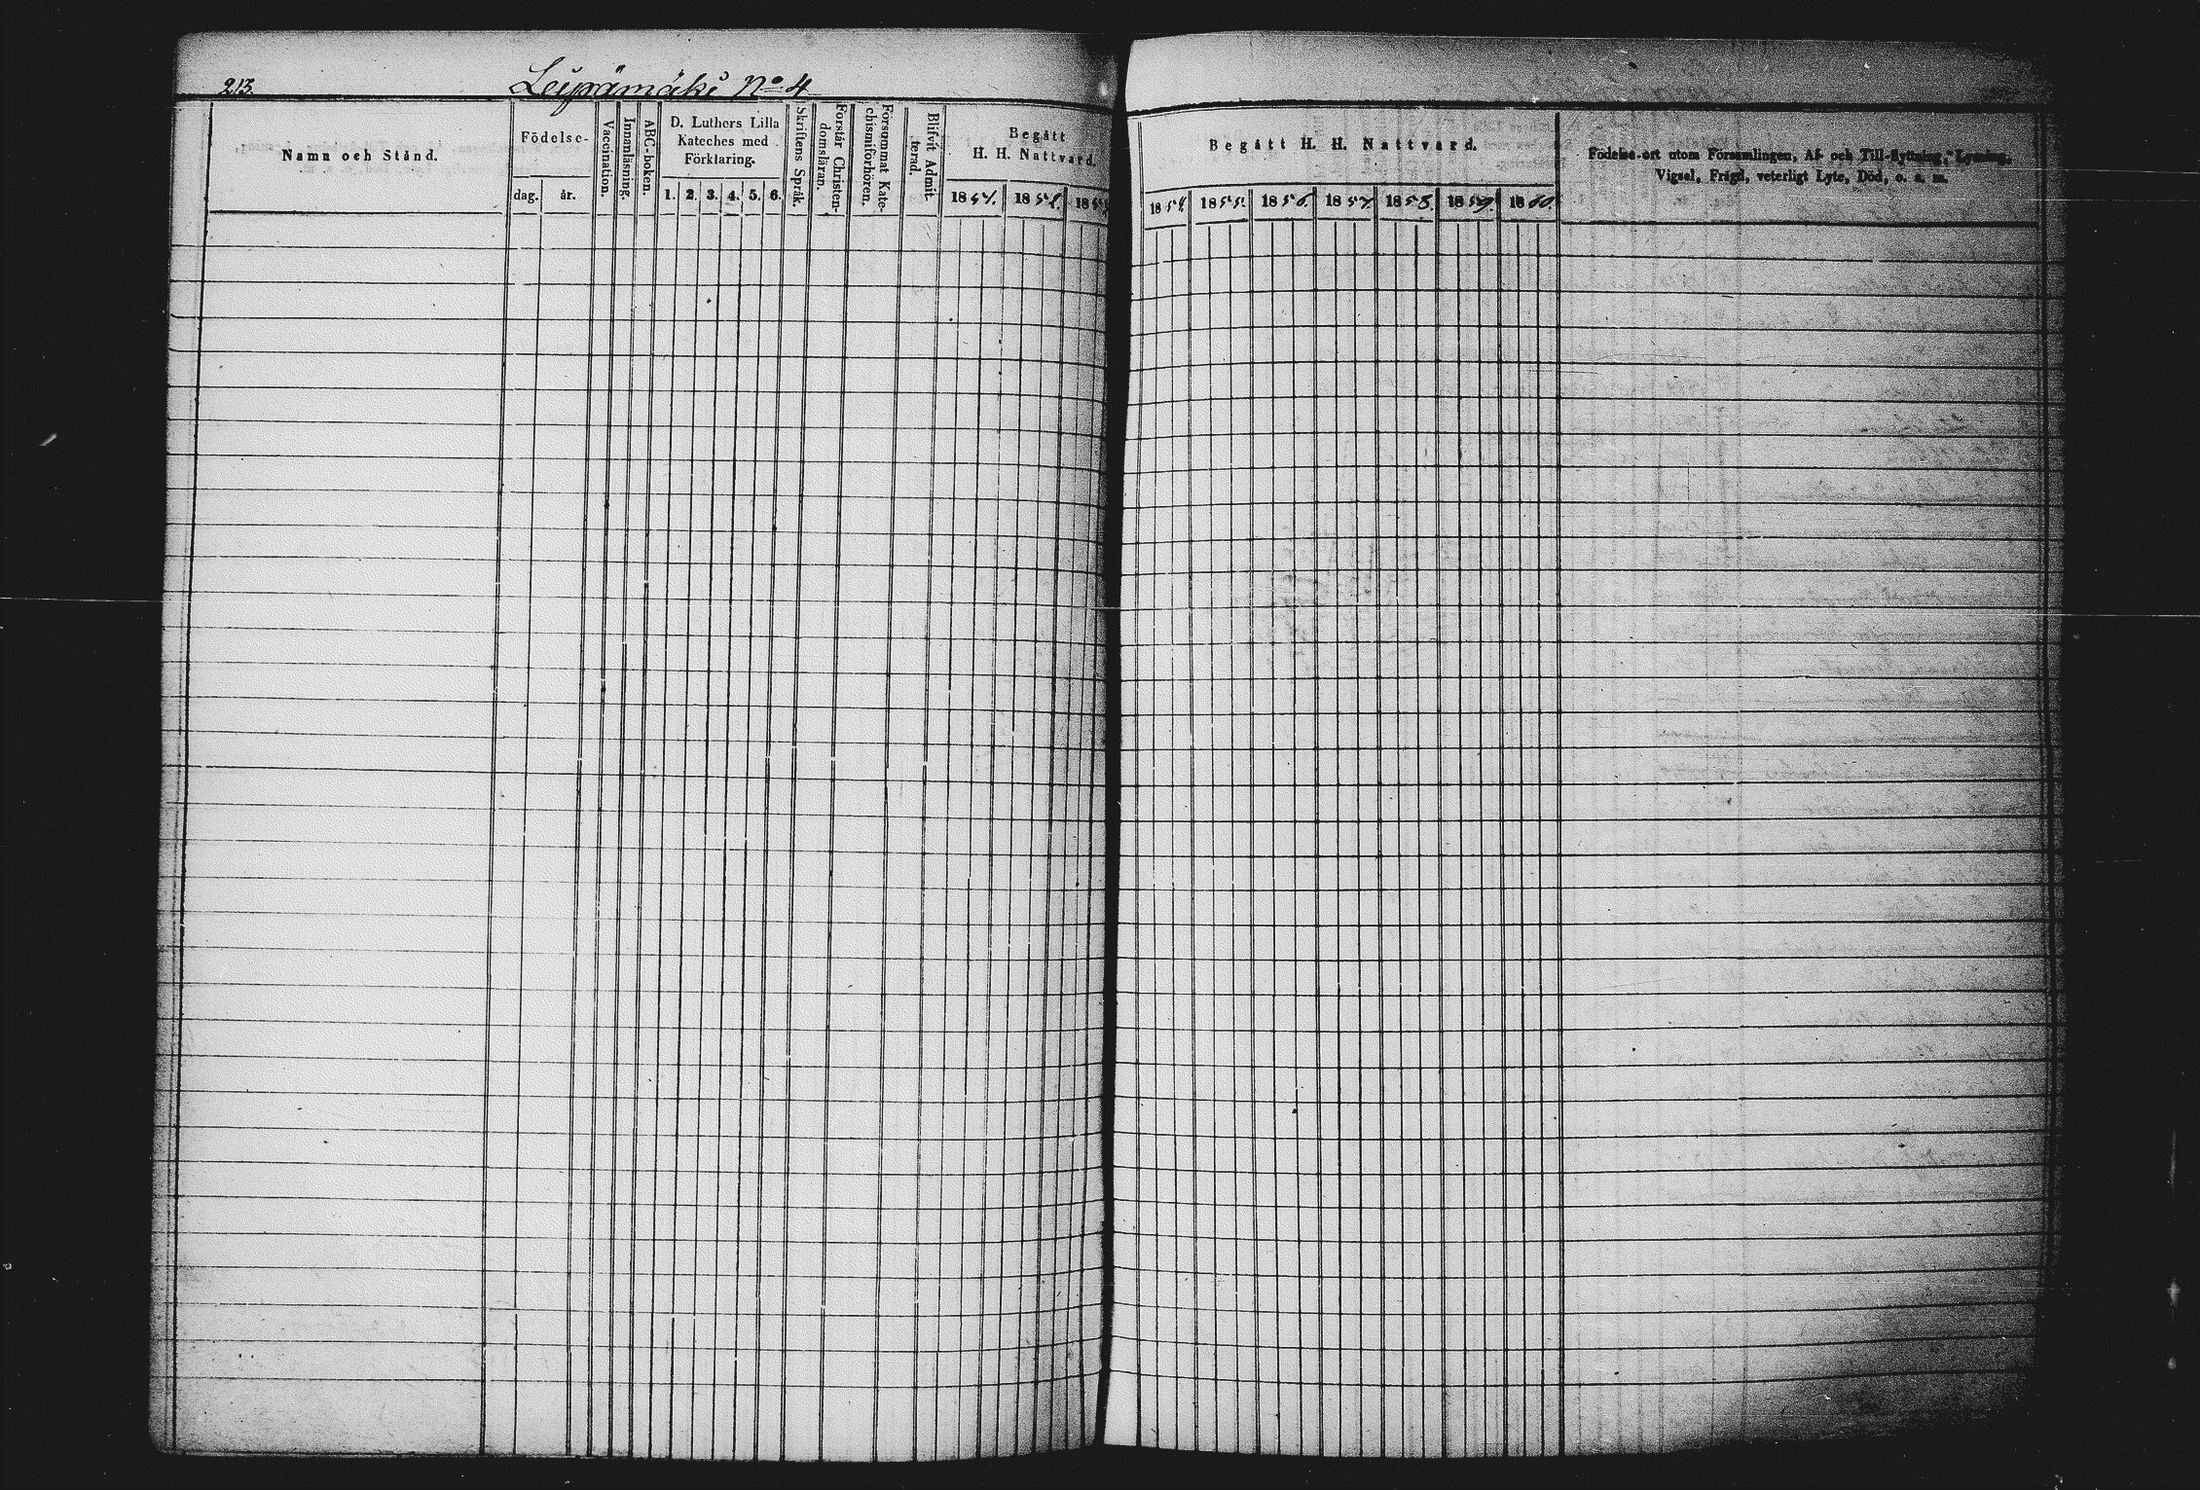 213.
Leipämäki No 4
Namn och Stånd.
Födelse-
dag.
år.
Vaccination.
Innanläsning.
ABC-boken.
D. Luthers Lilla
Kateches med
Förklaring.
1. 2. 3. 4. 5. 6.
Skriftens Språk.
Förstår Christen-
domsläran.
Försummat Kate-
chismiförhören.
Blifvit Admit-
terad.
Begått
H. H. Nattvard.
Begått H. H. Nattvard.
1854. 1855. 1856. 1857. 1858. 1859. 1860.
Födelse-ort utom Församlingen, Af- och Till-flyttning, Lysning,
Vigsel, Frägd, veterligt Lyte, Död, o. s. m.